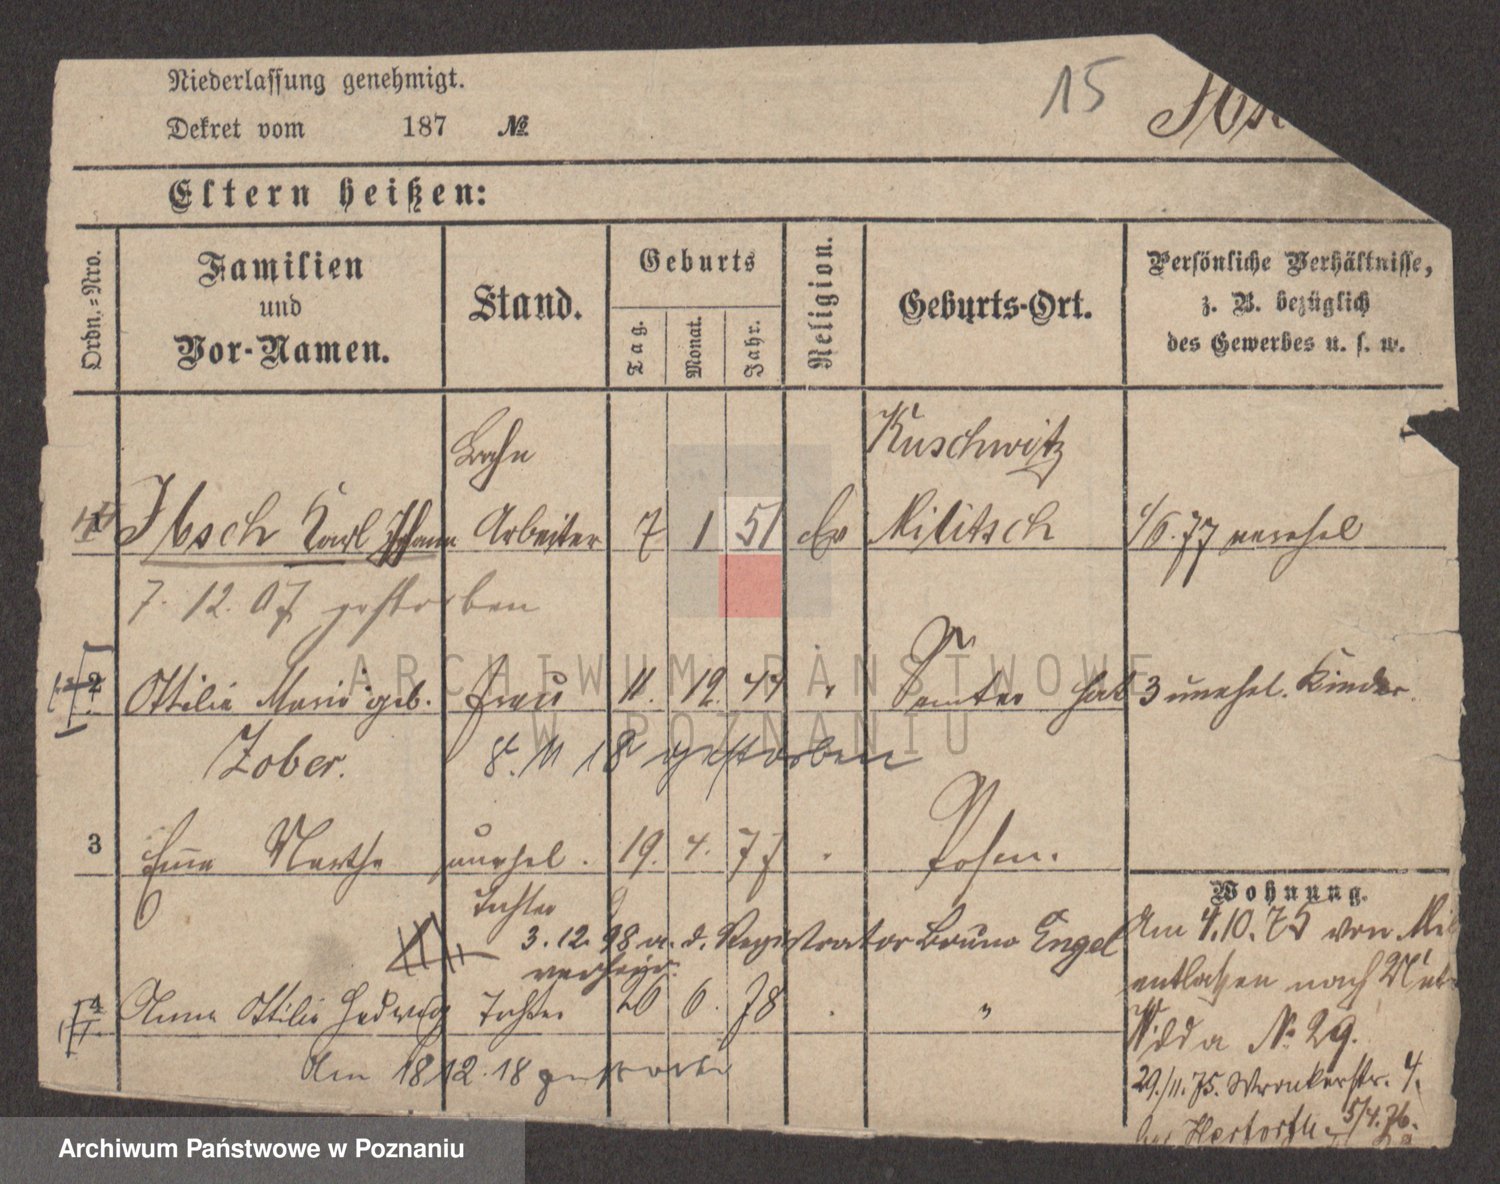 Niederlassung genehmigt.
15
Dekret vom 187 №
Eltern heißen:
Ordn.=Nro.
Familien
und
Vor-Namen.
Stand.
Geburts
Tag.
Monat.
Jahr.
Religion.
Geburts-Ort.
Persönliche Verhältnisse,
z. B. bezüglich
des Gewerbes u. s. w.
Bahn Kuschwitz
1 Ibsch Karl Johann Arbeiter 7 1 51 Ev Militsch 1/6. 77 verehel
7. 12. 07 gestorben
2 Ottilie Marie geb. Frau 11. 12. 47 " Samter hat 3 unehel. Kinder.
Zober. 8. 11 18 gestorben
3 Emma Marthe unehel. 19. 4. 77 " Posen.
Tochter
Wohnung.
3. 12. 98 a. d. Registrator Bruno Engel
verheir.
Am 4.10.75 von Mil
entlassen nach
4 Anna Ottilie Hedwig Tochter 26 6. 78 " "
Am 18 12. 18 gestorben
№ 29.
29./11. 75. Wronkerstr. 4.
5/4. 76.
ARCHIWUM PAŃSTWOWE
W POZNANIU
Archiwum Państwowe w Poznaniu